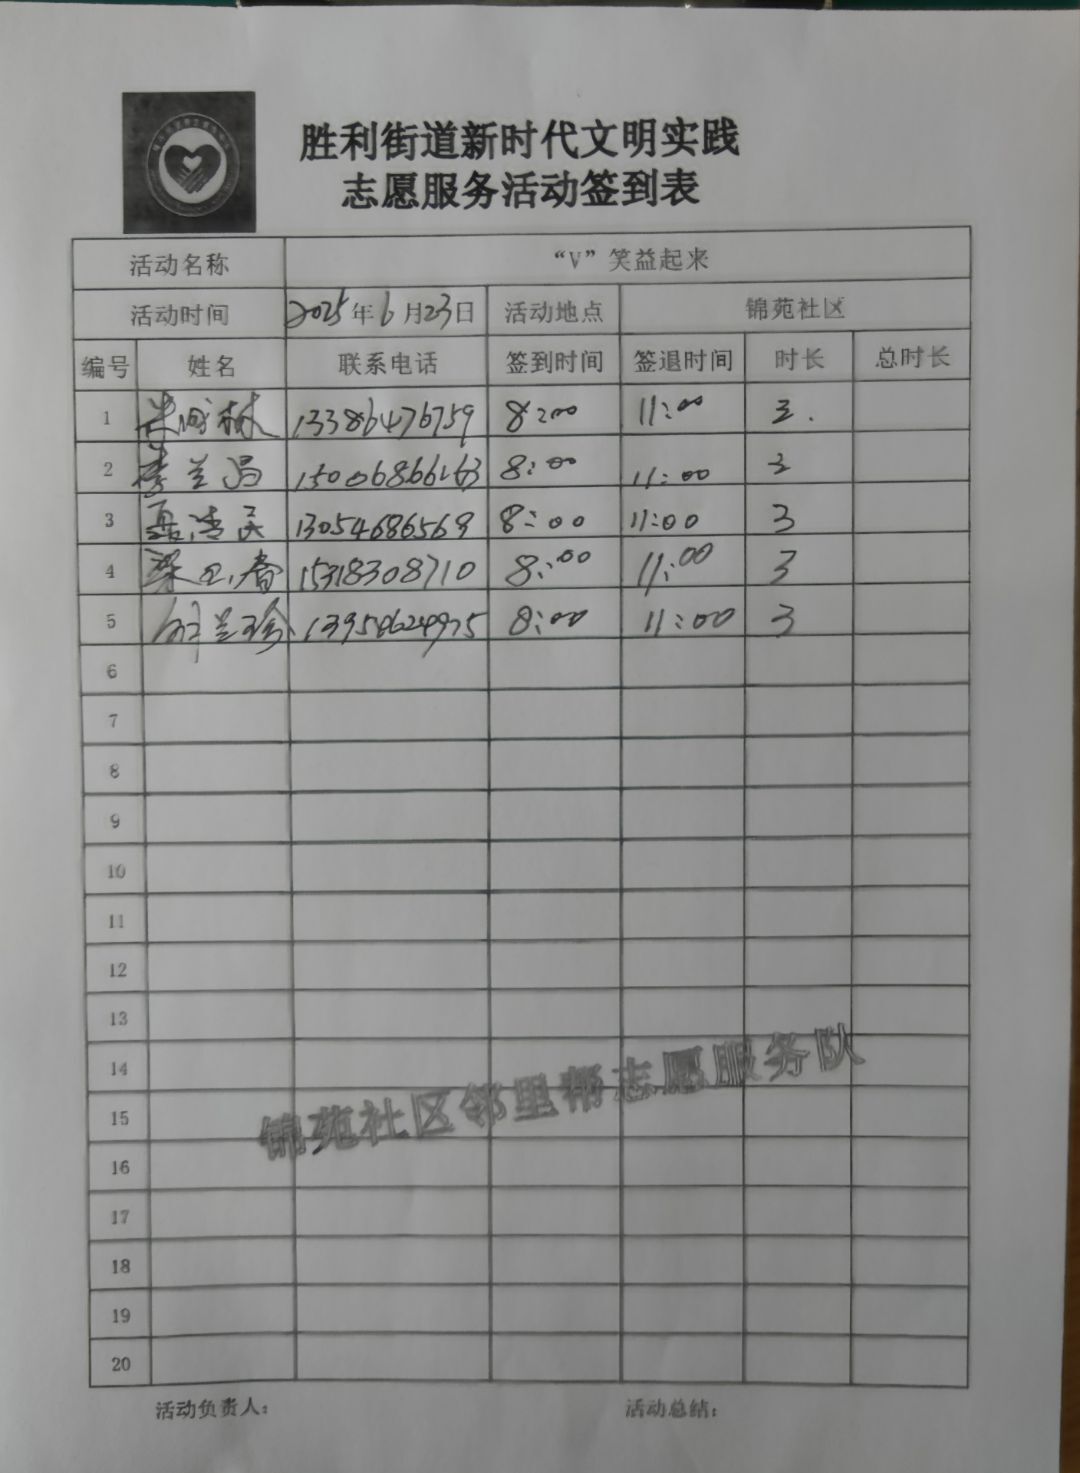 胜利街道新时代文明实践
志愿服务活动签到表
活动名称 “V”笑益起来
活动时间 2025年6月23日 活动地点 锦苑社区
编号 姓名 联系电话 签到时间 签退时间 时长 总时长
1 13386476759 8:00 11:00 3.
2 李兰昌 15006866163 8:00 11:00 3
3 13054686569 8:00 11:00 3
4 15318308710 8:00 11:00 3
5 兰珍 8:00 11:00 3
6
7
8
9
10
11
12
13
14
15
16
17
18
19
20
锦苑社区邻里帮志愿服务队
活动负责人: 活动总结: